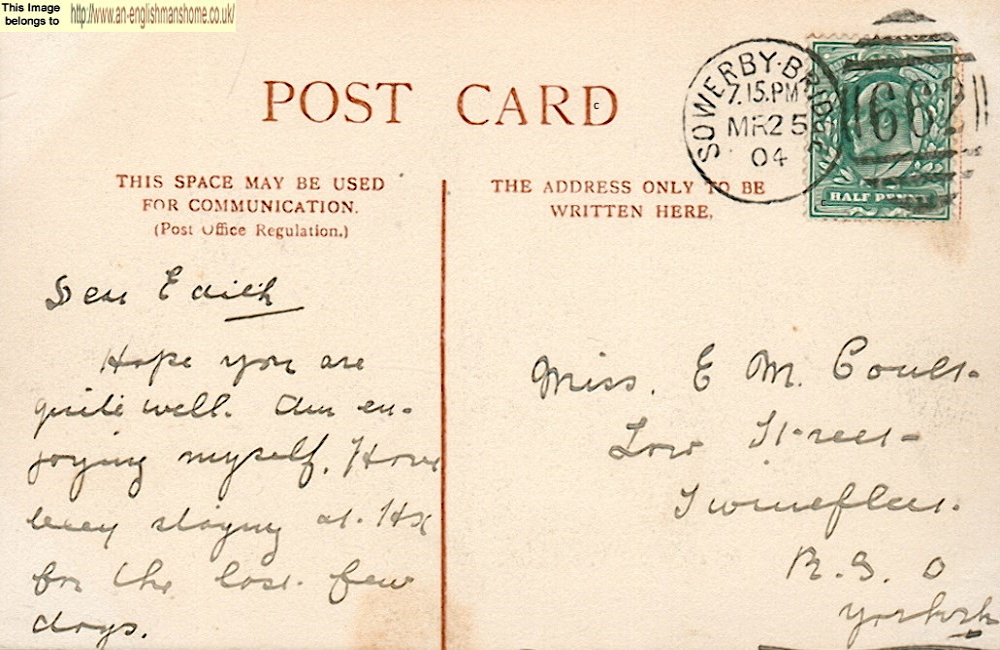 This Image
belongs to
http://www.an-englishmanshome.co.uk/
POST CARD
c
THIS SPACE MAY BE USED
FOR COMMUNICATION.
(Post Office Regulation.)
THE ADDRESS ONLY TO BE
WRITTEN HERE.
SOWERBY·BRIDGE
7.15.PM
MR25
04
662
HALF PENNY
Dear Edith
Hope you are
quite well. Am en-
joying myself. Have
been staying at Hx
for the last few
days.
Miss. E M. Coult
Low Street
Swinefleet.
R.S.O
Yorksh